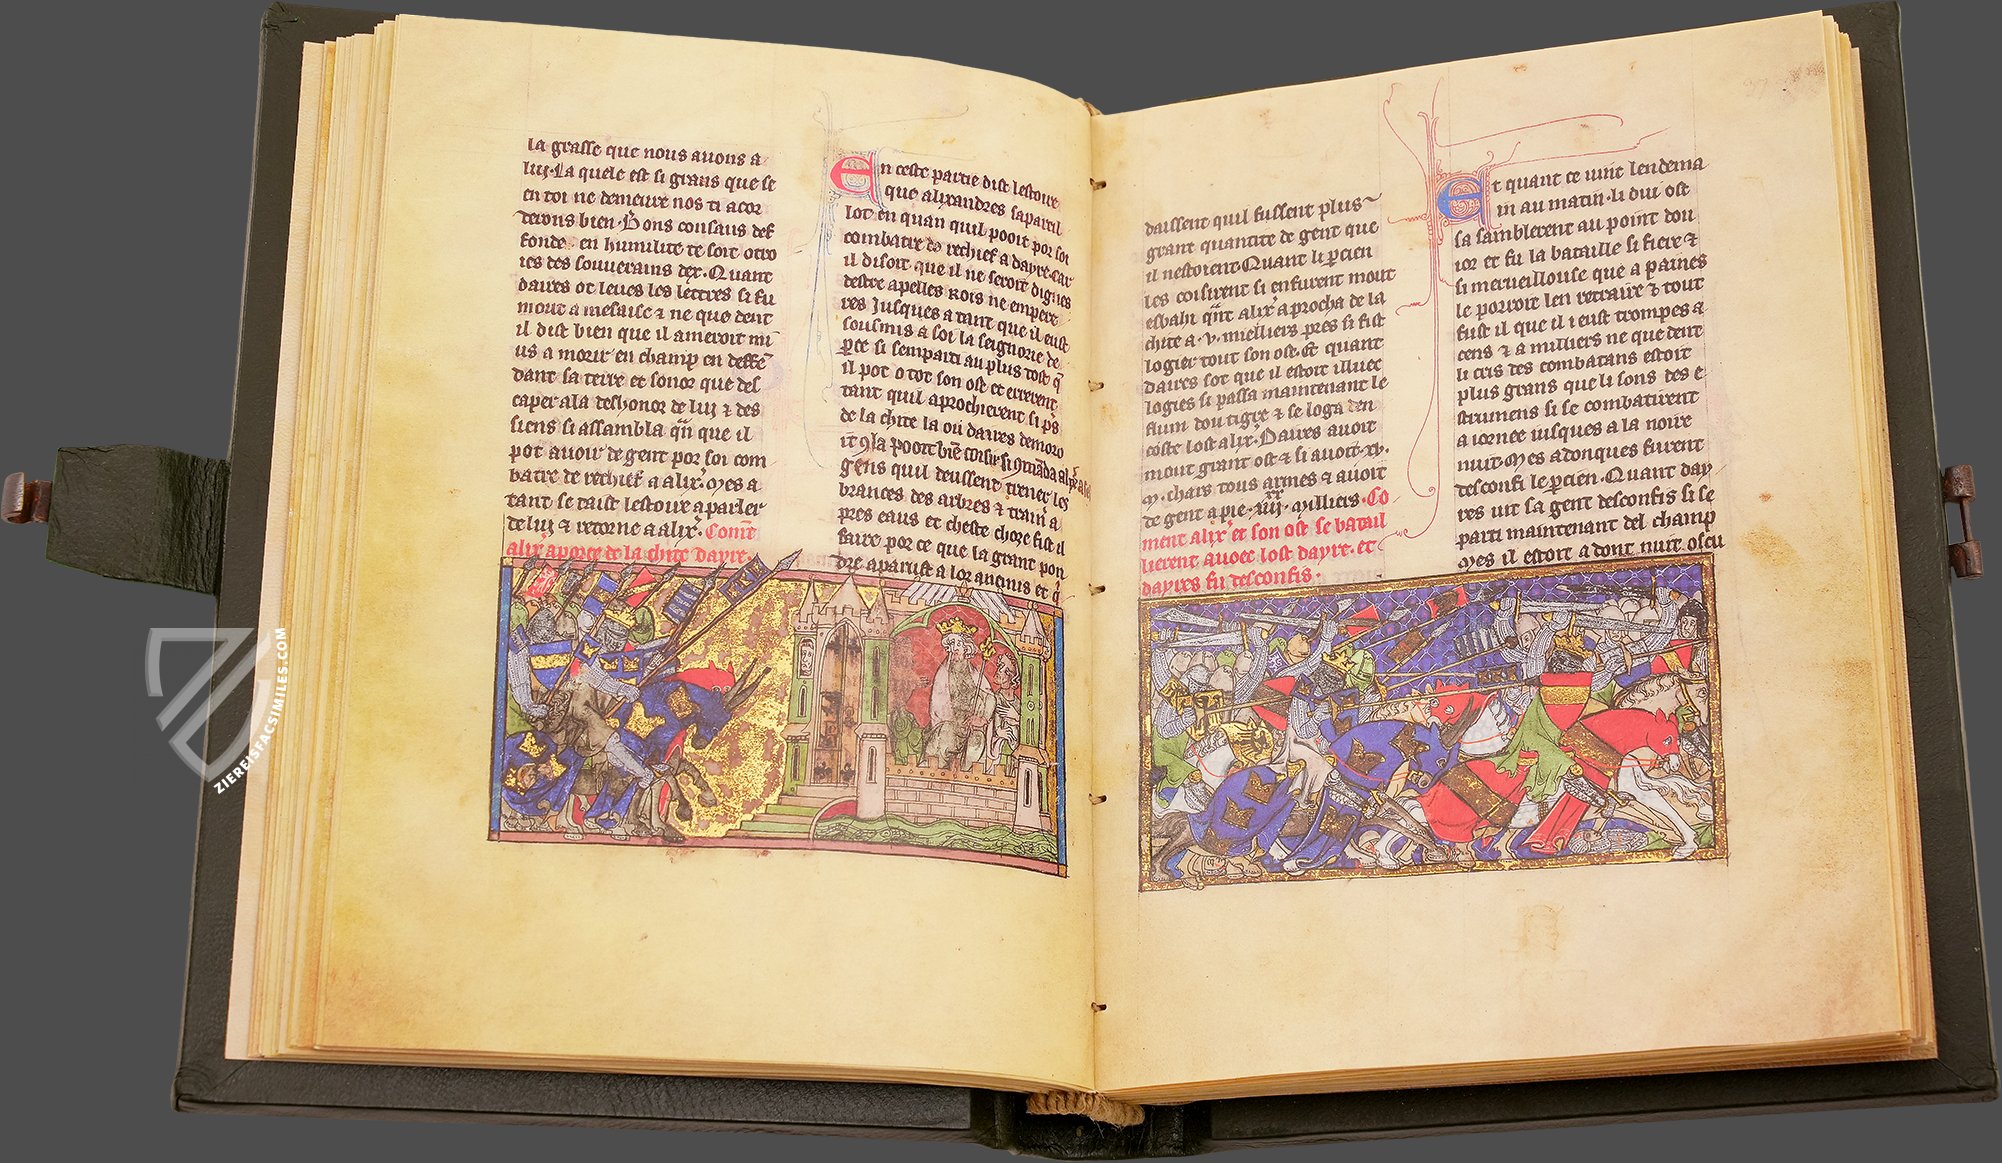 la grasse que nous auons a
luy. La quele est si grans que se
en toi ne demeure nos ti acor
derons bien. Bons consaus def
fonde en humilite te soit otro
ies des souuerains dex. Quant
daires ot leues les lettres si fu
mout a mesaise ⁊ ne que dent
il dist bien que il ameroit mi
us a morir en champ en deffē
dant sa terre et sonor que des
caper ala deshonor de luy ⁊ des
siens si assambla qñ que il
pot auoir de gent por soi com
batre de rechief a alix̄. Mes a
tant se taist lestoire a parler
de luy ⁊ retorne a alix̄. Comēt
alix̄ aporce de la chite dayre.
En ceste partie dist lestoire
que alixandres sapareil
lot en quan quil pooit por soi
combatre de rechief a dayre. Car
il disoit que il ne seroit dignes
destre apelles Rois ne empere
res Jusques a tant que il eust
sousmis a soi la seignorie de
perce si semparti au plus tost q̄
il pot o tot son ost et errerent
tant quil aprochierent si ps
de la chite la ou daires demoro
it
gens quil deussent trener les
brances des arbres ⁊ trair a
pres eaus et cheste chose fist il
faire por ce que la grant pon
dre aparust a lor anemis et q̄
daissent quil fussent plus
grant quantite de gent que
il nestoient Quant li percien
les coisirent si enfurent mout
esbahi qñt alix̄ aprocha de la
chite a .v. milliers pres si fist
logier tout son ost. Et quant
daires sot que il estoit illuec
logies si passa maintenant le
flum dou tigre ⁊ se loga den
coste lost alix̄. Daires auoit
mout grant ost ⁊ si auoit .xv.
.M. chars tous armes ⁊ auoit
de gent a pie .xx iiij. Milliers. Co
ment alix̄ et son ost se batail
lierent auoec lost dayre. et
dayres fu desconfis.
Et quant ce vint lendema
in au matin. li dui ost
sa samblerent au point dou
ior et fu la bataille si fiere ⁊
si merueillouse que a paines
le porroit len retraire ⁊ tout
fust il que il i eust trompes a
cens ⁊ a milliers ne que dent
li cris des combatans estoit
plus grans que li sons des e
strumens si se combatirent
a iornee iusques a la noire
nuit. Mes adonques furent
desconfi le percien. Quant day
res uit sa gent desconfis si se
parti maintenant del champ
Mes il estoit a dont nuit oscu
ZIEREISFACSIMILES.COM